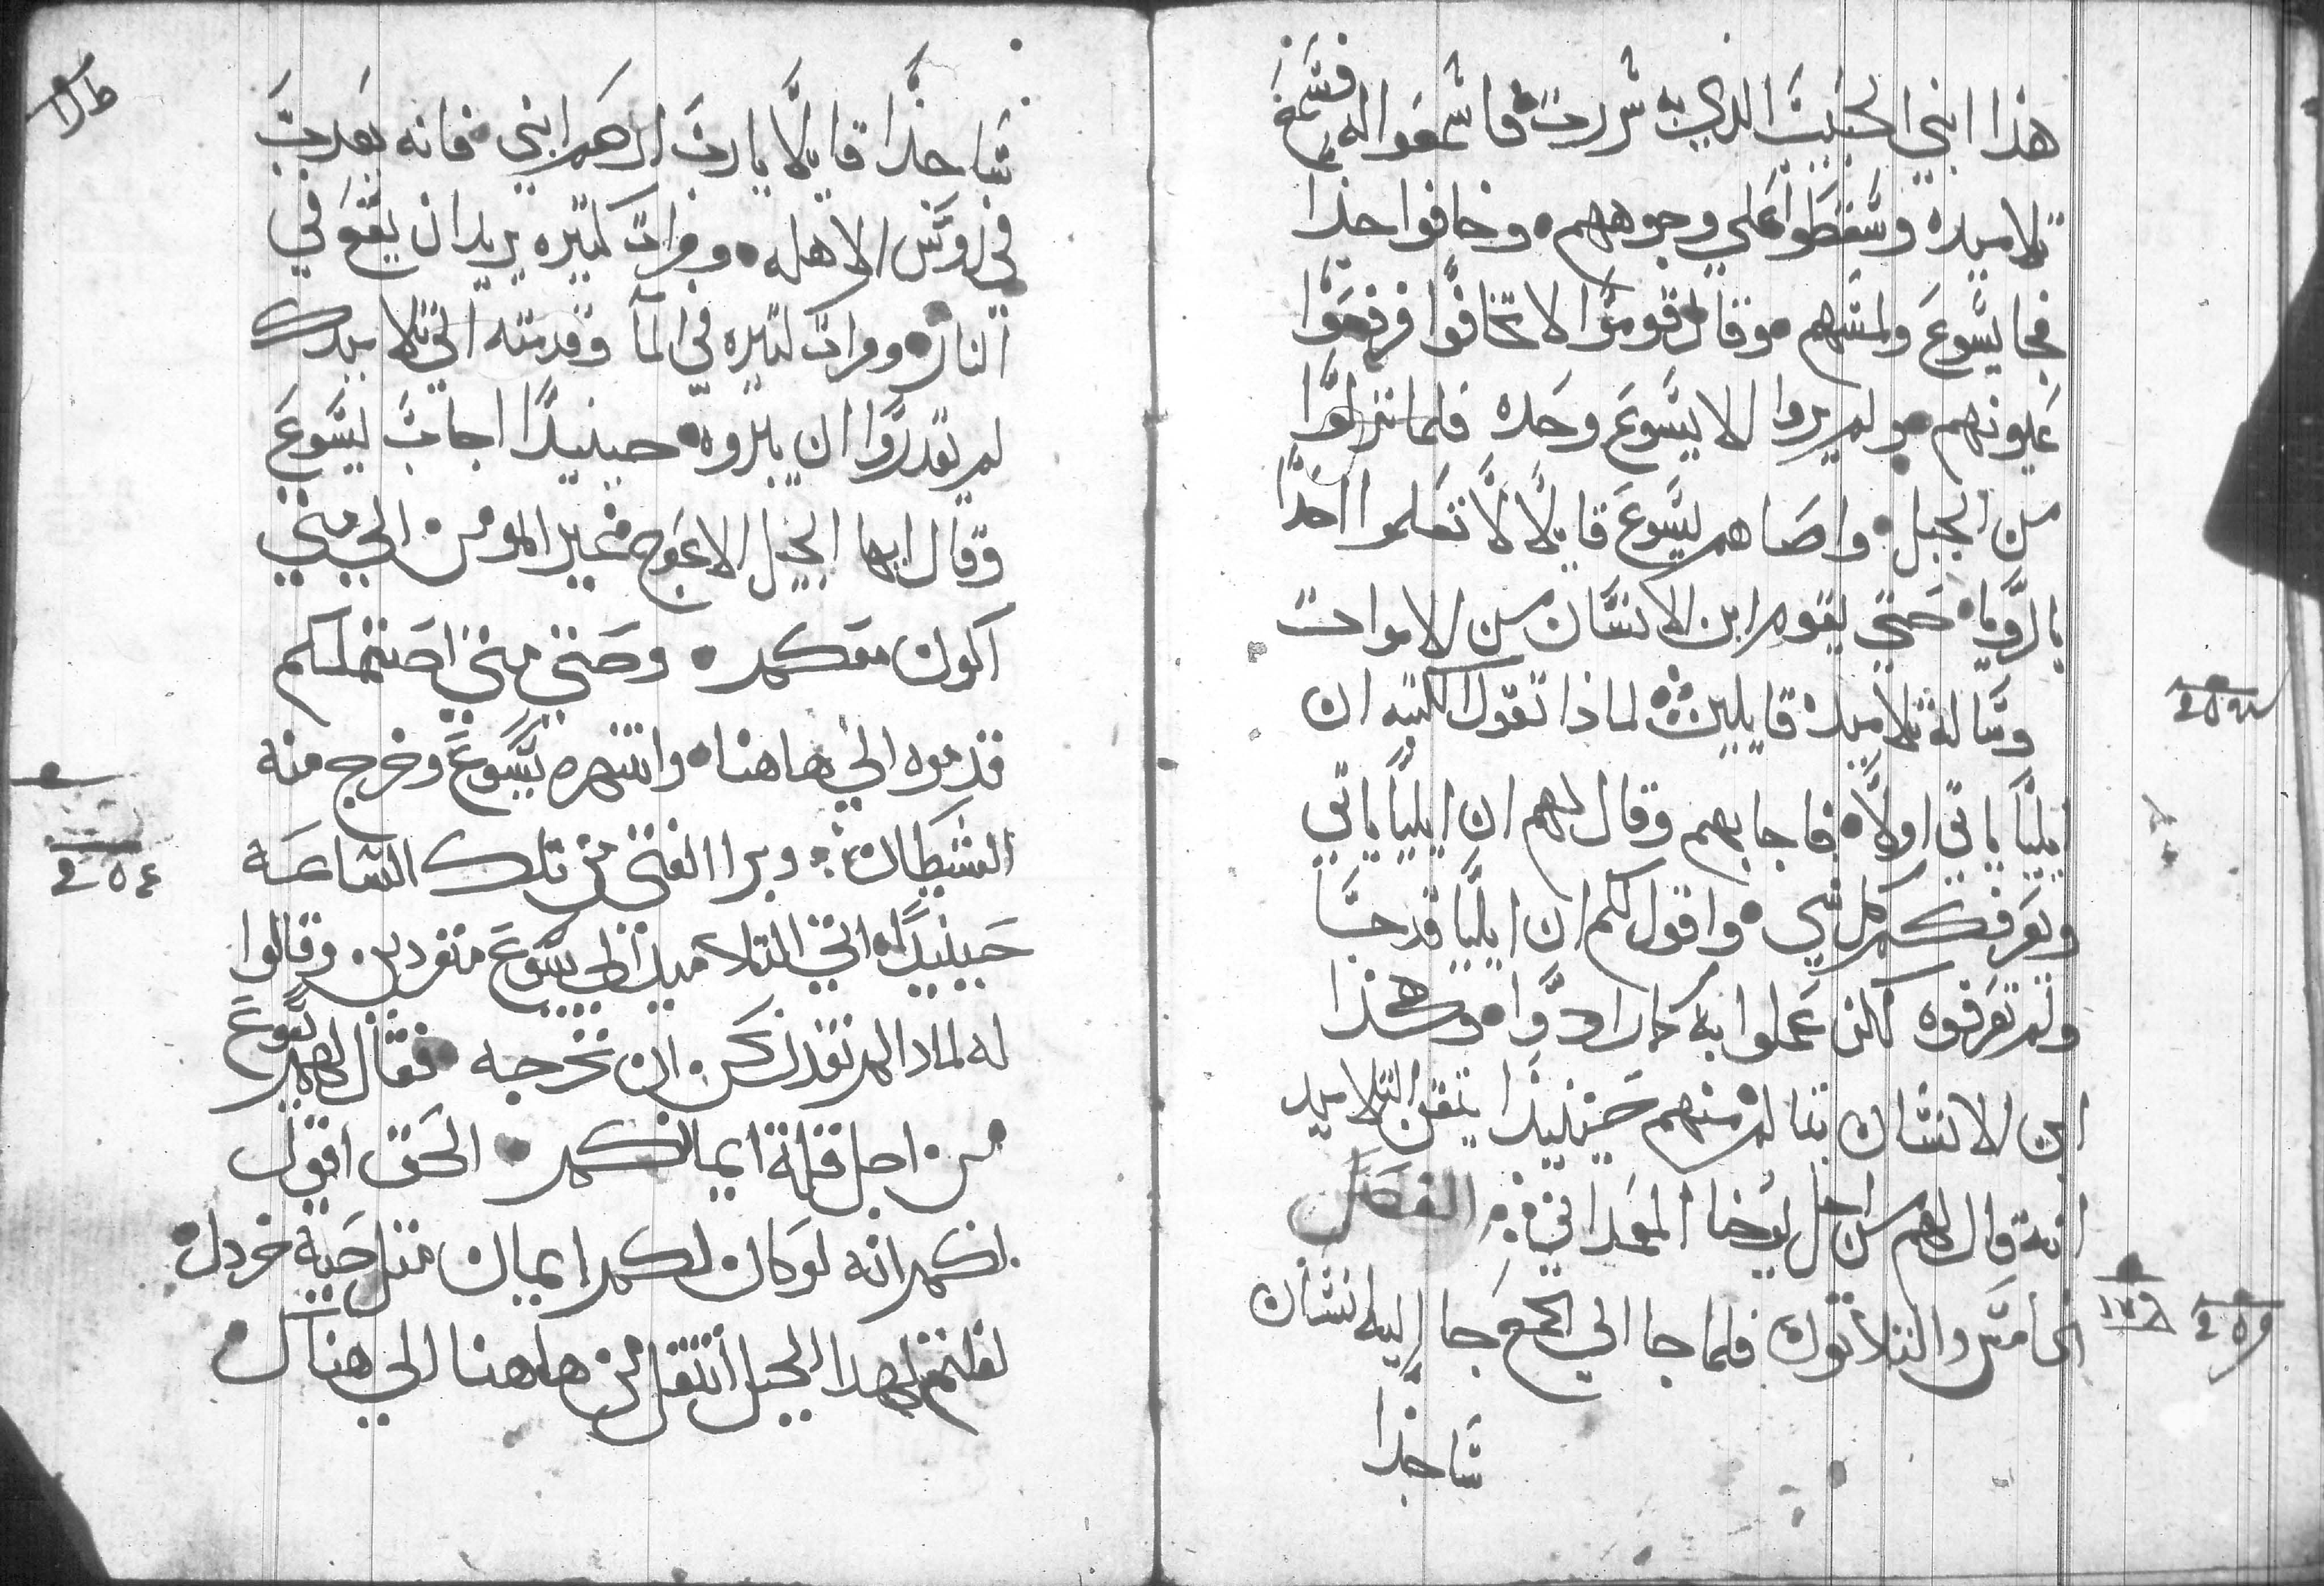 هذا ابني الحبيب الذي به سررت فاسمعوا له فسمع
تلاميده وسقطوا علي وجوههم • وخافوا جدا
فجا يسوع ولمسهم وقال قوموا لا تخافوا فرفعوا
عيونهم • ولم يروا الا يسوع وحده فلما نزلوا
من الجبل • واصاهم يسوع قايلا لا تعلموا احدا
بالرويا • حتي يقوم ابن الانسان من الاموات
وساله تلاميده قايلين لماذا تقول الكتبه ان
ايليا ياتي اولا • فاجابهم وقال لهم ان ايليا ياتي
ويعرفكم كل شي • واقول لكم ان ايليا قد جا
ولم تعرفوه لكن عملوا به كما ارادوا • وهكذا
ابن الانسان يتالم منهم حينيذا يتقن التلاميد
انه قال لهم من اجل يوحنا المعمداني ؞ الفصل
الخامس والتلاتون فلما جا الي الجمع جا اليه انسان
ساجدا
ساجدا قايلا يا رب ارحم ابني • فانه يعدب
في روس الاهله • ومرات كتيره يريد ان يقع في
النار • ومرات كتيره في الما وقدمته الي تلاميدك
لم يقدروا ان يبروه • حينيدا اجاب يسوع
وقال ايها الجيل الاعوج غير المومن الي متي
اكون معكم • وحتي متي احتملكم
قدموه الي هاهنا • وانتهره يسوع وخرج منه
الشيطان ؞ وبرا الفتي من تلك الساعة
حينيدا • اتي التلاميد الي يسوع منفردين وقالوا
له لمادا لم نقدر نحن ان نخرجه • فقال لهم يسوع
من اجل قلة ايمانكم • الحق اقول
لكم انه لو كان لكم ايمان متل حبة خردل •
لقلتم لهدا الجبل انتقل من هاهنا الي هناك